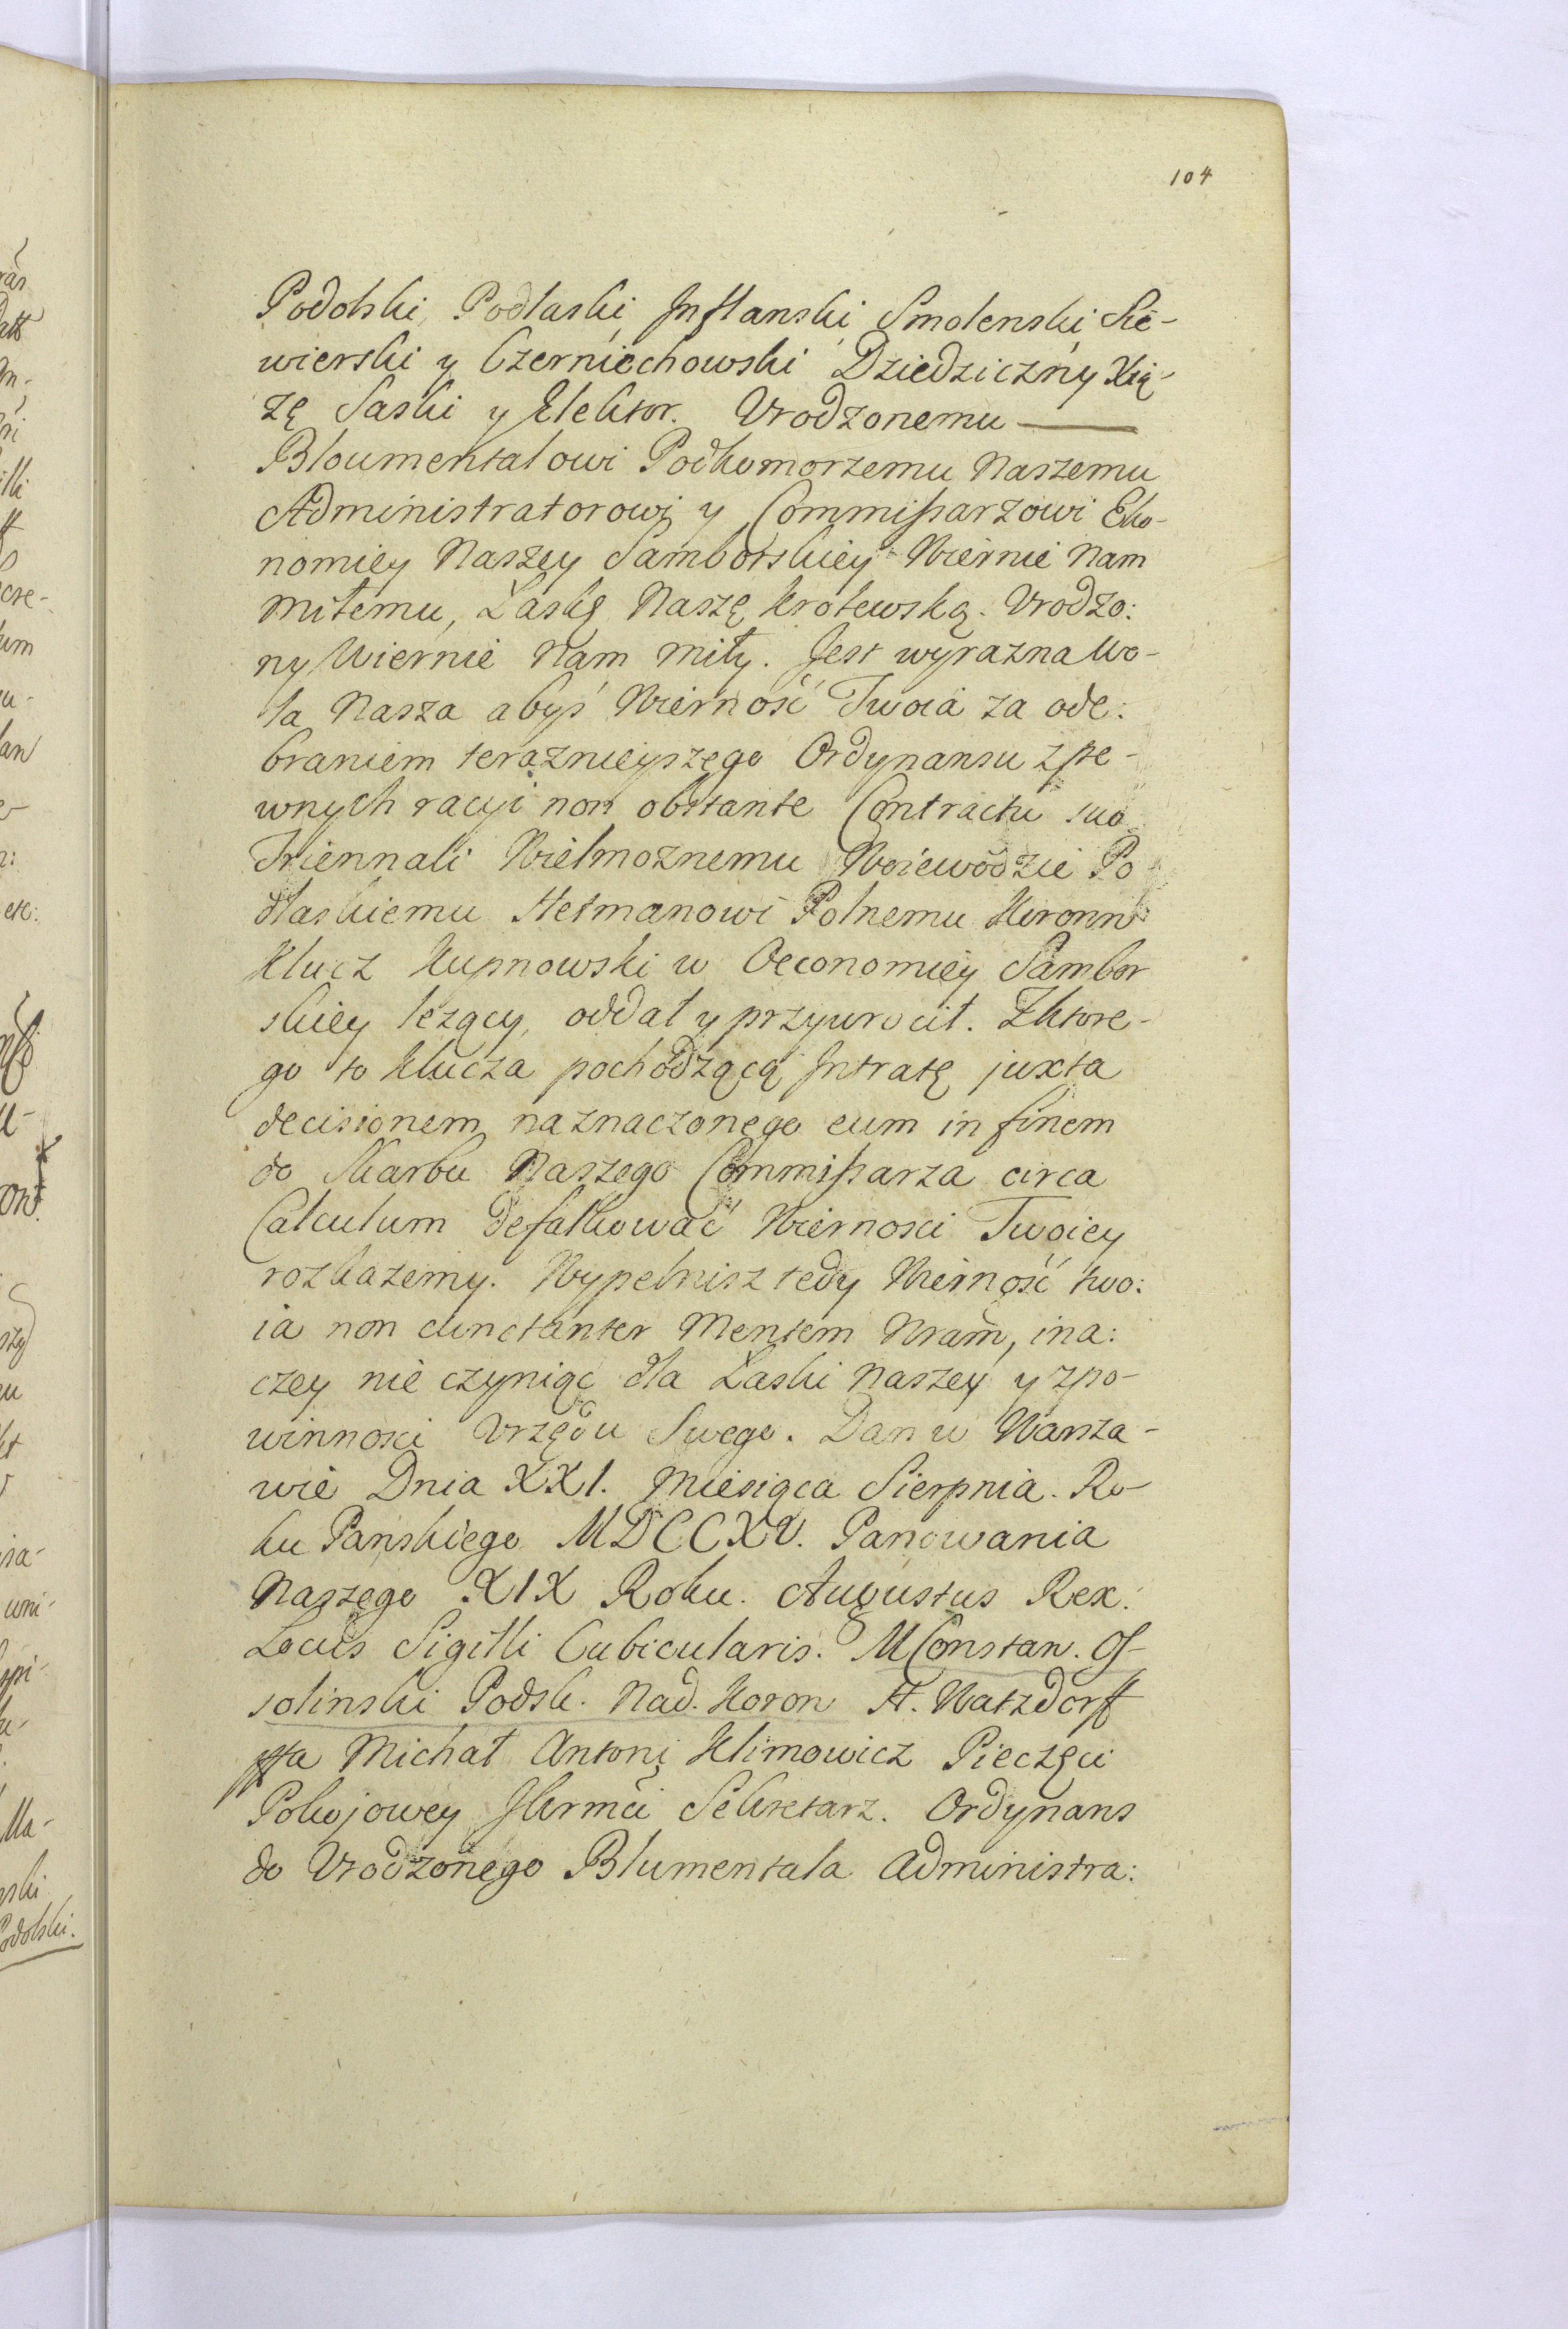 104
Podolski, Podlaski, Inflanski, Smolenski, Sie-
wierski y Czerniechowski Dziedziczny Xią-
zę Saski y Elektor. Urodzonemu ———
Bloumentalowi Podkomorzemu Naszemu
Administratorowi y Commissarzowi Eko-
nomiey Naszey Samborskiey Wiernie Nam
miłemu, Łaskę Naszę krolewską. Urodzo:
ny Wiernie Nam miły. Jest wyrazna Wo-
la Nasza abyś Wierność Twoia za ode:
braniem teraznieyszego Ordynansu z pe-
wnych racyi non obstante Contractu suo
Triennali Wielmoznemu Woiewodzie Po
dlaskiemu Hetmanowi Polnemu Koronn:
Klucz Kupnowski w Oeconomiey Sambor
skiey lezący, oddał y przywrocił. Z ktore-
go to klucza pochodzącą Intratę juxta
decisionem naznaczonego eum in finem
do Skarbu Naszego Commissarza circa
Calculum defalkować Wiernosci Twoiey
rozkazemy. Wypełnisz tedy Wierność two:
ia non cunctanter Mentem Nram, ina:
czey nie czyniąc dla Łaski Naszey y z po-
winnosci Urzędu Swego. Dan w Warsza-
wie Dnia XXI. Miesiąca Sierpnia. Ro-
ku Panskiego MDCCXV. Panowania
Naszego XIX Roku. Augustus Rex.
Locus Sigilli Cubicularis. M Constan. Os-
solinski Podsk. Nad. Koron H. Watzdorff
Michał Antoni Klimowicz Pieczęci
Pokojowey JKrmci Sekretarz. Ordynans
do Urodzonego Blumentala Administra: